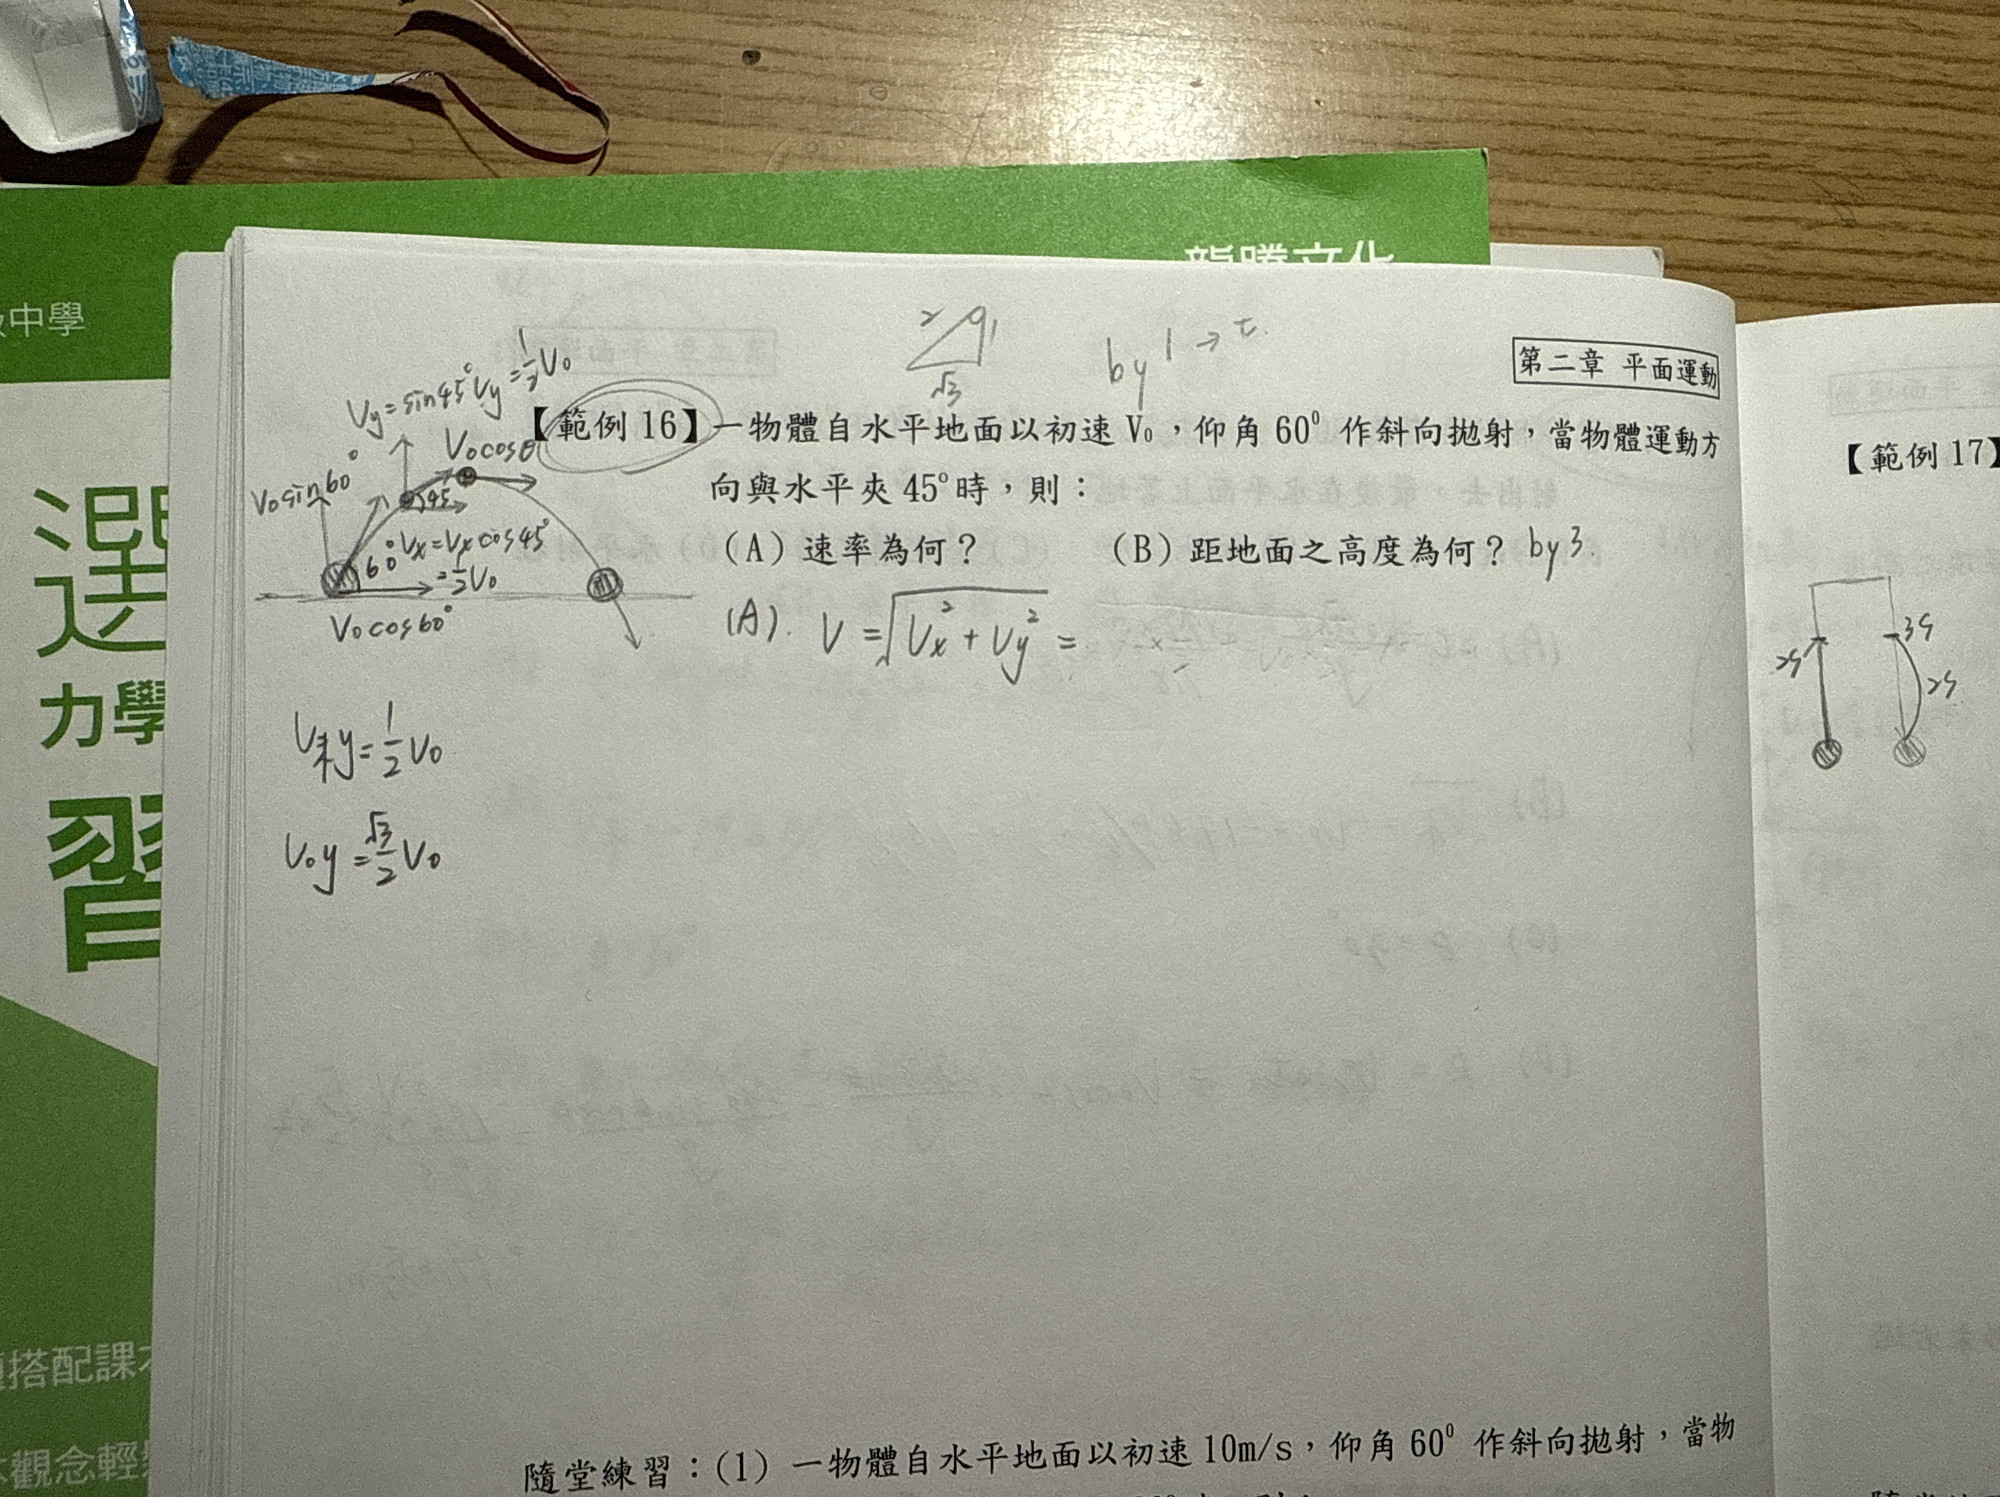 龍騰文化
中學
選
力學
習
搭配課本
觀念輕鬆
第二章 平面運動
2 1 √3
by 1 → t.
Vy=sin45°Vy=1/2V₀
【範例 16】一物體自水平地面以初速 V₀，仰角 60⁰ 作斜向拋射，當物體運動方
向與水平夾 45°時，則：
(A) 速率為何？ (B) 距地面之高度為何？ by 3.
V₀cosθ
V₀sin60°
45
60° Vx=Vxcos45°
=1/2V₀
V₀cos60°
(A). V=√(Vx²+Vy²)=
V末y=1/2V₀
V₀y=√3/2V₀
隨堂練習：(1) 一物體自水平地面以初速 10m/s，仰角 60⁰ 作斜向拋射，當物
【範例 17】
2s 3s
2s